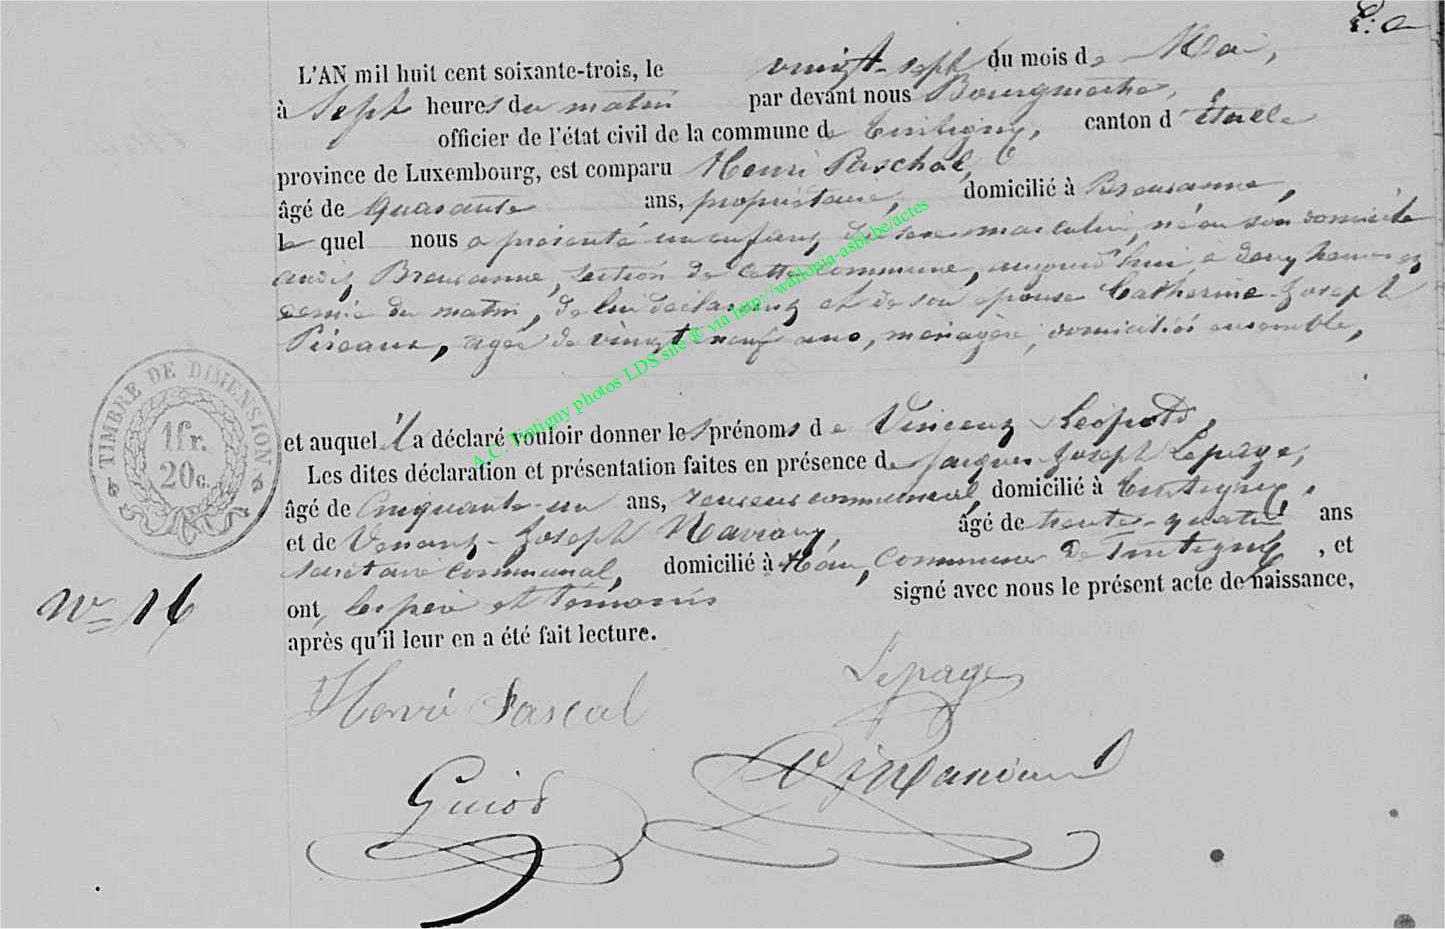 L'AN mil huit cent soixante-trois, le vingt-sept du mois de Mai,
à Sept heures du matin par devant nous Bourgmestre,
officier de l'état civil de la commune de Tintigny, canton d'étalle
province de Luxembourg, est comparu Henri Paschal,
âgé de quarante ans, propriétaire, domicilié à Breuvanne,
le quel nous a présenté un enfant de sexe masculin, né en son domicile
audit Breuvanne, section de cette commune, aujourd'hui à deux heures et
demie du matin, de lui déclarant et de son épouse Catherine-Joseph
agée de vingt neuf ans, ménagère, domiciliés ensemble,
et auquel il a déclaré vouloir donner les prénoms de Vincent Léopold,
Les dites déclaration et présentation faites en présence de Jacques-Joseph Lepage,
âgé de Cinquante-un ans, receveur communal, domicilié à Tintigny,
et de Venant-Joseph âgé de trente-quatre ans
secrétaire communal, domicilié à Han, commune de Tintigny, et
ont, les père et témoins signé avec nous le présent acte de naissance,
après qu'il leur en a été fait lecture.
TIMBRE DE DIMENSION
1fr.
20c.
N° 16
Henri Pascal
Lepage
Guiot
A.C. Tintigny photos LDS site © via http://wallonia-asbl.be/actes